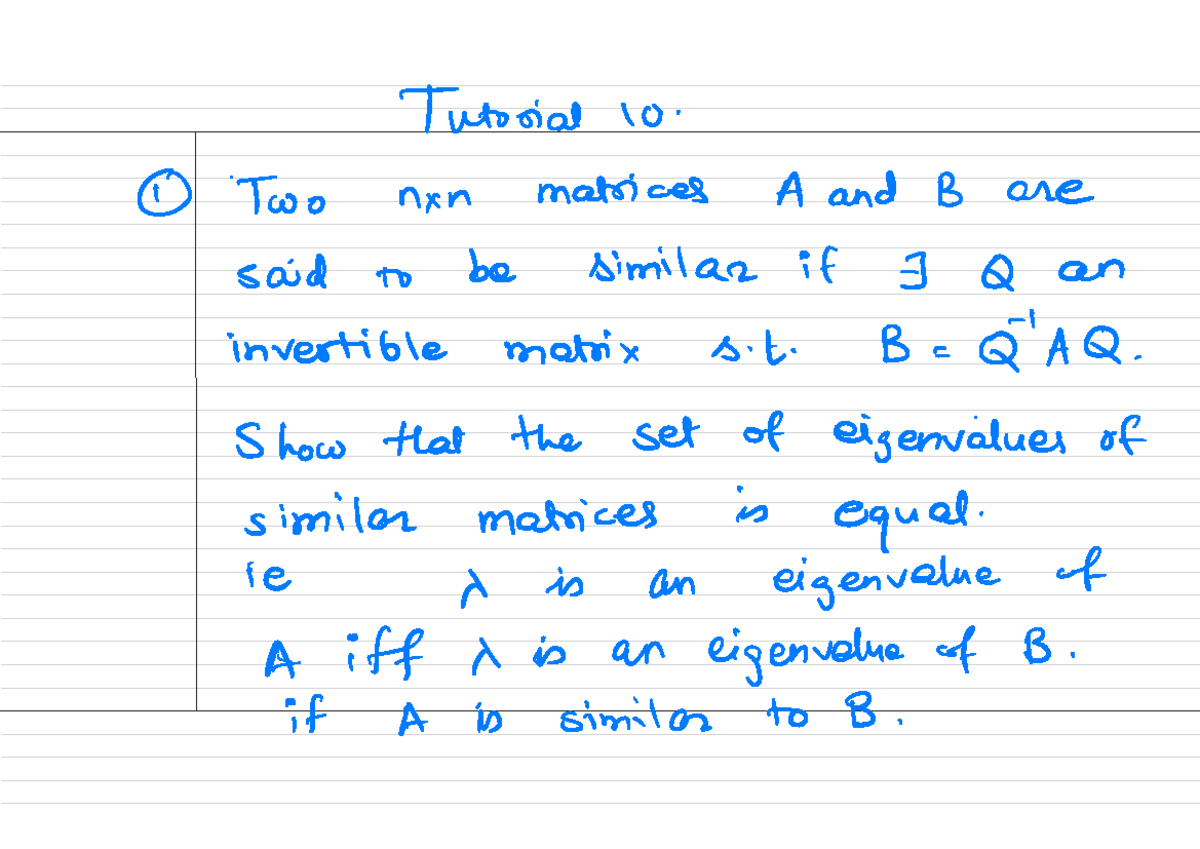 Tutorial 10.
① Two nxn matrices A and B are
said to be similar if ∃ Q an
invertible matrix s.t. B = Q⁻¹AQ.
Show that the set of eigenvalues of
similar matrices is equal.
ie λ is an eigenvalue of
A iff λ is an eigenvalue of B.
if A is similar to B.